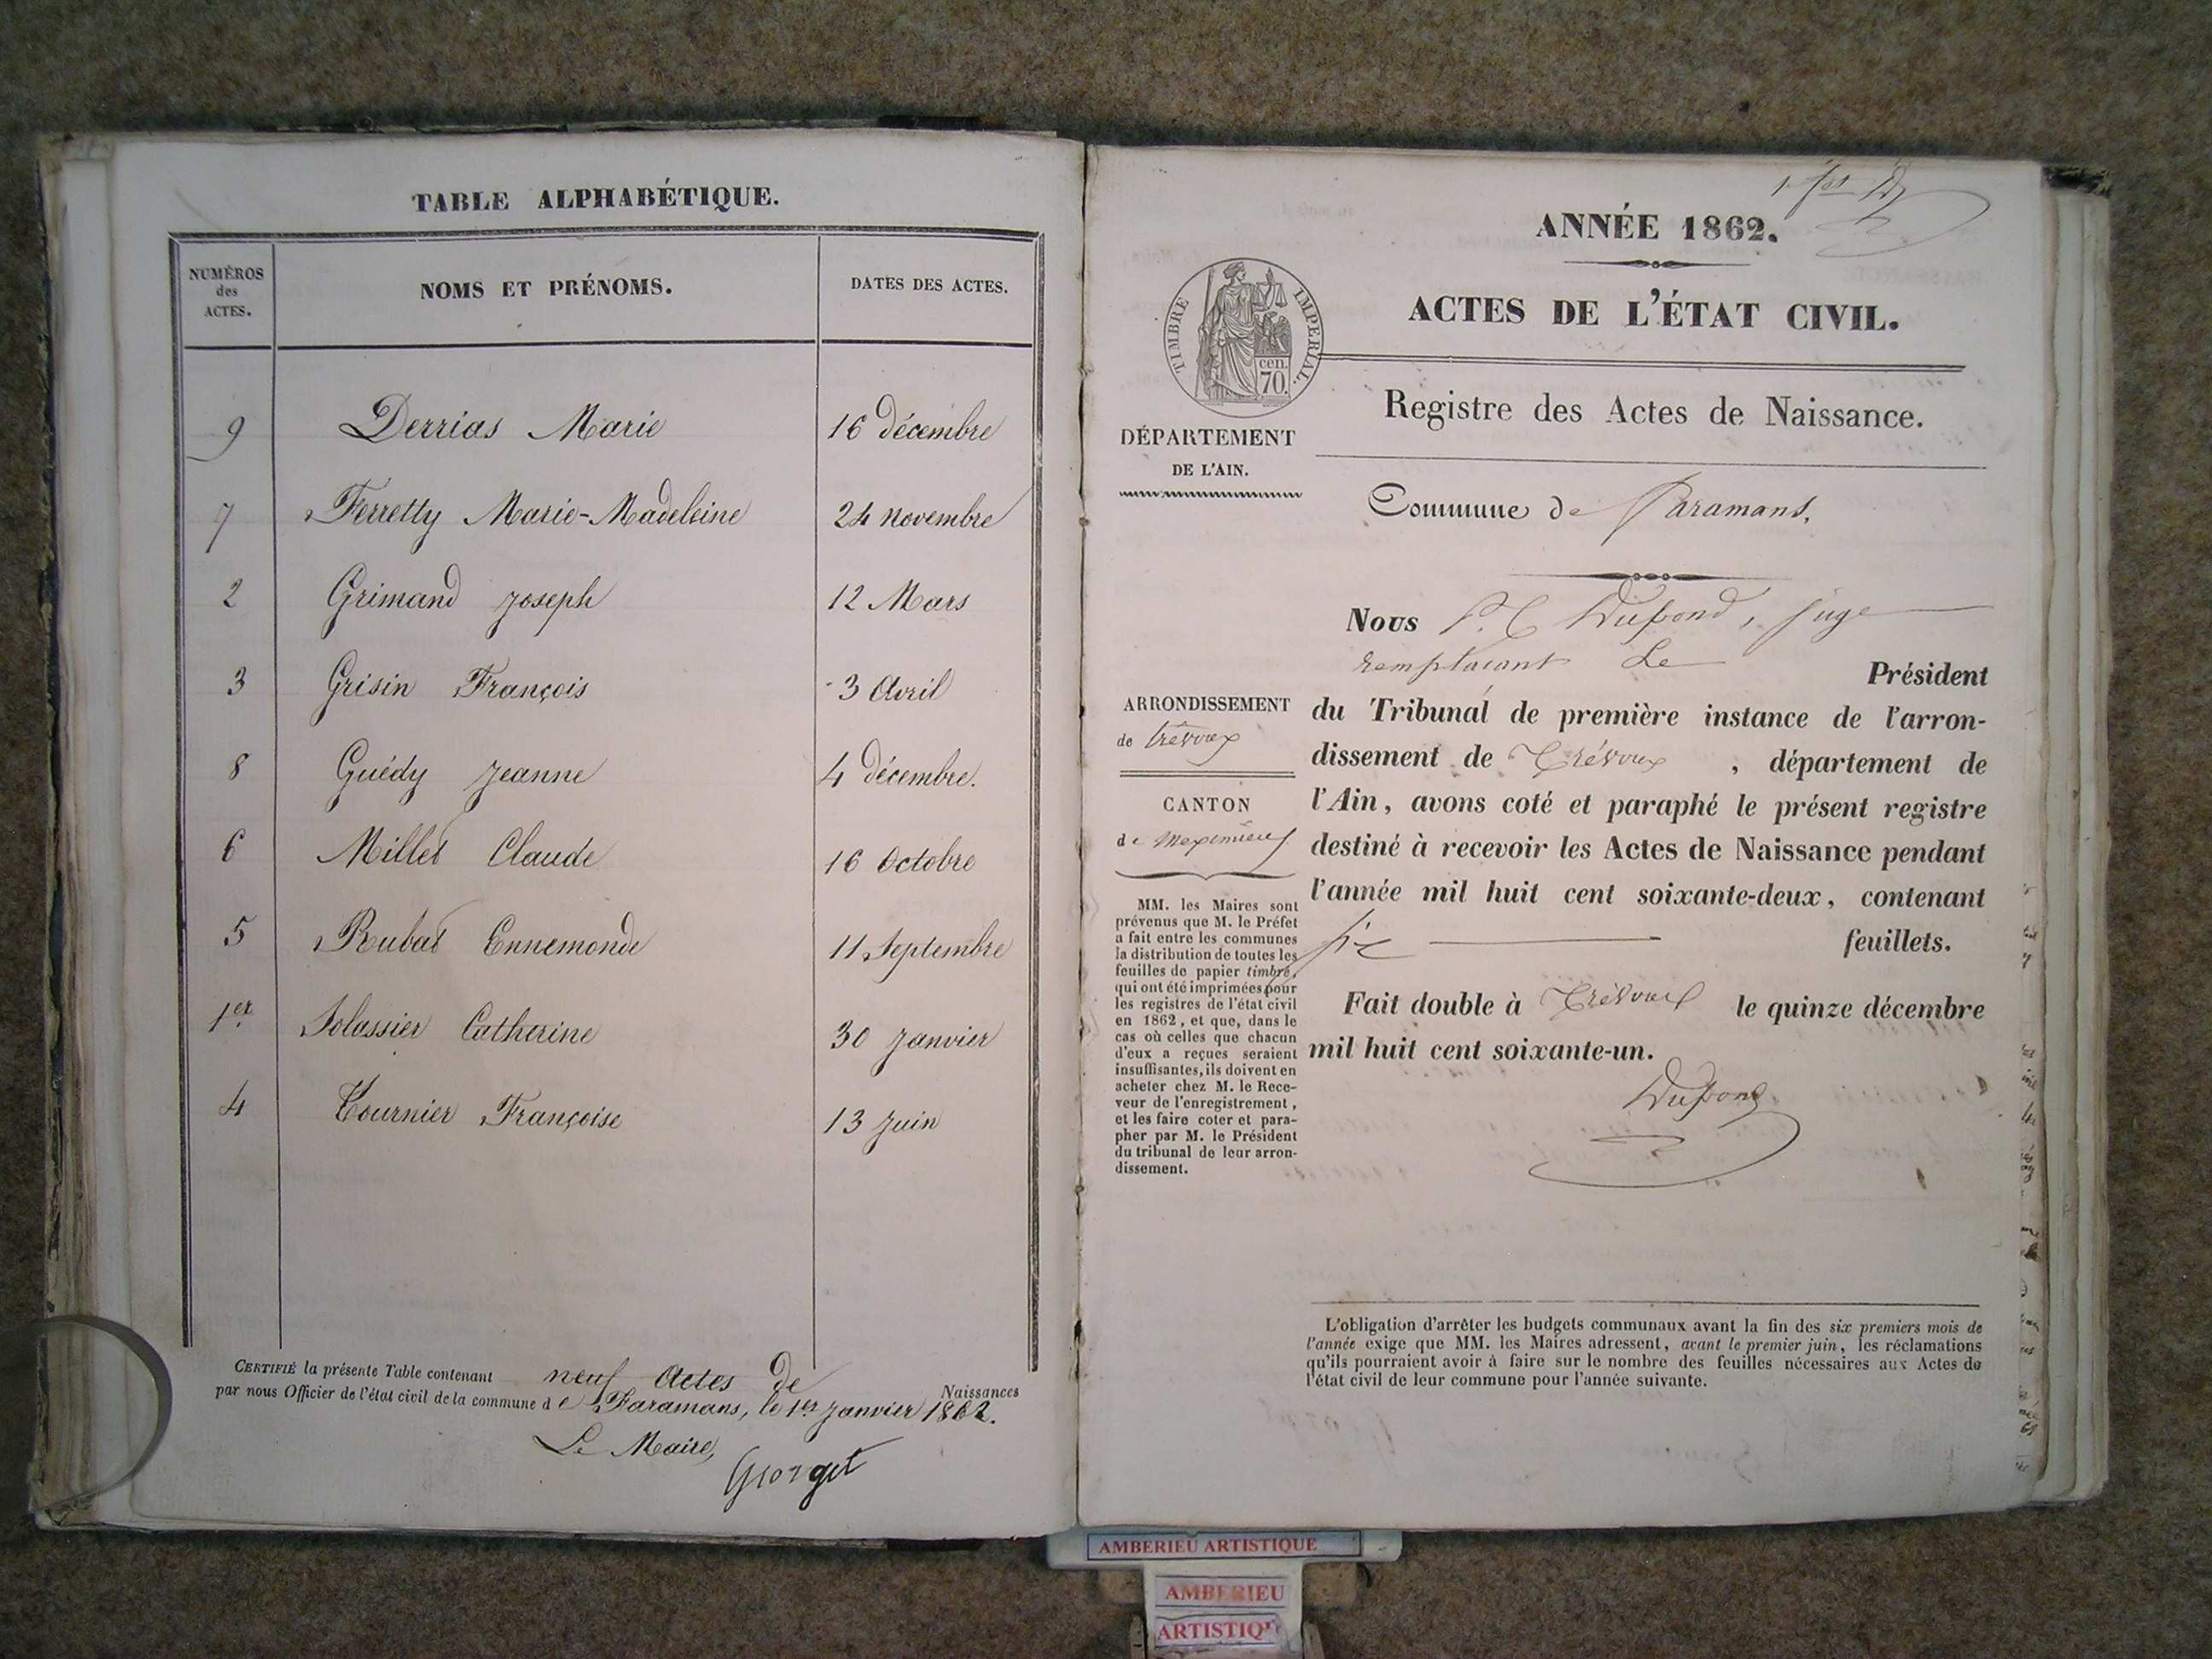 TABLE ALPHABÉTIQUE.
NUMÉROS des ACTES.
NOMS ET PRÉNOMS.
DATES DES ACTES.
9 Derrias Marie 16 décembre
7 Ferretty Marie-Madeleine 24 novembre
2 Grimand Joseph 12 Mars
3 Grisin François 3 Avril
8 Guédy Jeanne 4 décembre.
6 Millet Claude 16 Octobre
5 Rubat Ennemonde 11 Septembre
1er Solassier Catherine 30 Janvier
4 Tournier Françoise 13 Juin
CERTIFIÉ la présente Table contenant neuf Actes de Naissances
par nous Officier de l'état civil de la commune de Faramans, le 1er Janvier 1862.
Le Maire,
Georget
ANNÉE 1862.
TIMBRE IMPERIAL.
cen.
70.
ACTES DE L'ÉTAT CIVIL.
Registre des Actes de Naissance.
DÉPARTEMENT
DE L'AIN.
Commune de Faramans.
Nous Dupond, juge
remplacant Le Président
ARRONDISSEMENT
de Trévoux
CANTON
de Meximieux
du Tribunal de première instance de l'arron-
dissement de Trévoux, département de
l'Ain, avons coté et paraphé le présent registre
destiné à recevoir les Actes de Naissance pendant
l'année mil huit cent soixante-deux, contenant
six feuillets.
Fait double à Trévoux le quinze décembre
mil huit cent soixante-un.
Dupond
MM. les Maires sont
prévenus que M. le Préfet
a fait entre les communes
la distribution de toutes les
feuilles de papier timbré,
qui ont été imprimées pour
les registres de l'état civil
en 1862, et que, dans le
cas où celles que chacun
d'eux a reçues seraient
insuffisantes, ils doivent en
acheter chez M. le Rece-
veur de l'enregistrement,
et les faire coter et para-
pher par M. le Président
du tribunal de leur arron-
dissement.
L'obligation d'arrêter les budgets communaux avant la fin des six premiers mois de
l'année exige que MM. les Maires adressent, avant le premier juin, les réclamations
qu'ils pourraient avoir à faire sur le nombre des feuilles nécessaires aux Actes de
l'état civil de leur commune pour l'année suivante.
AMBERIEU ARTISTIQUE
AMBERIEU
ARTISTIQ